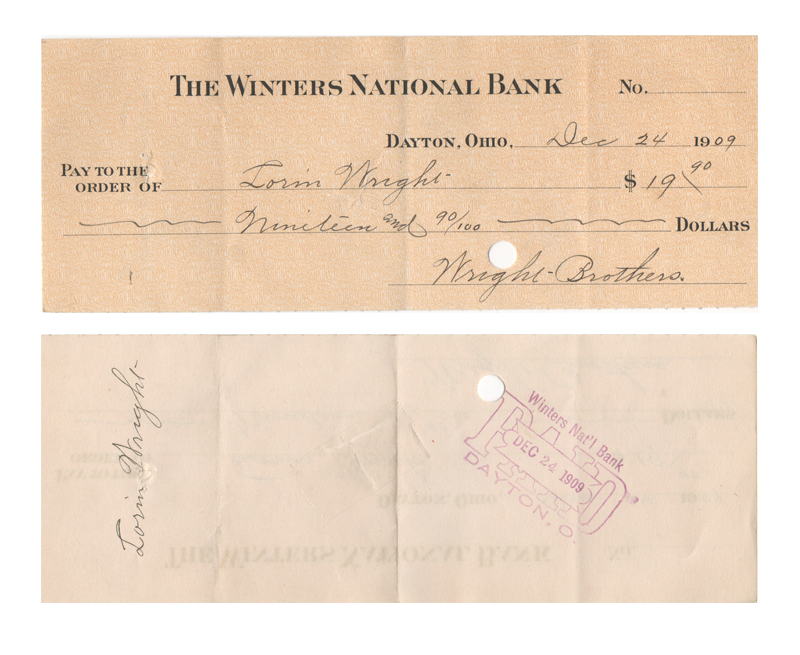 THE WINTERS NATIONAL BANK No.
DAYTON, OHIO, Dec 24 1909
PAY TO THE
ORDER OF Lorin Wright $ 19 90
Nineteen and 90/100 DOLLARS
Wright Brothers.
Lorin Wright
Winters Nat'l Bank
PAID
DEC 24 1909
DAYTON, O.